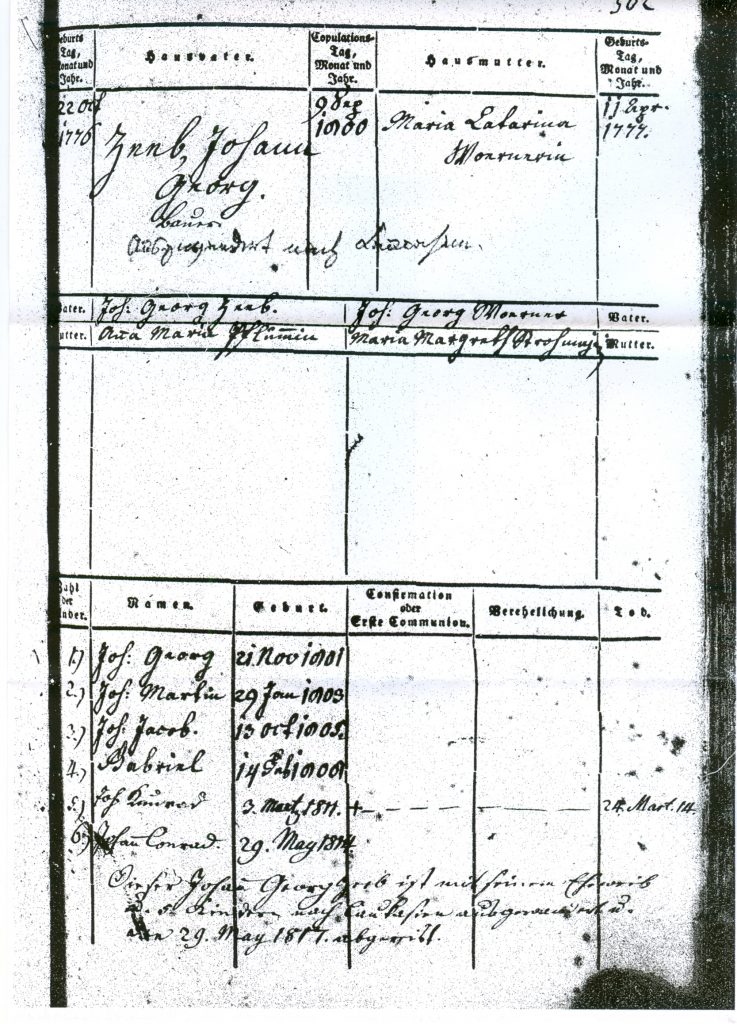 Geburts Tag, Monat und Jahr. Hausvater. Copulations-Tag, Monat und Jahr. Hausmutter. Geburts-Tag, Monat und Jahr.
22 Oct 1776
Zeeb, Johann
Georg.
Bauer.
9 Sep 1800
Maria Catarina
Woernerin
11 Apr. 1777.
Ausgewandert nach
Vater. Joh: Georg Zeeb. Joh: Georg Woerner Vater.
Mutter. Anna Maria Pflümmin Maria Margreth Mutter.
Zahl der Kinder. Namen. Geburt. Confirmation oder Erste Communion. Verehelichung. Tod.
1.) Joh: Georg 21 Nov 1801
2.) Joh: Martin 29 Jan 1803
3.) Joh: Jacob. 13 Oct 1805.
4.) Gabriel 14 Feb 180
5.) Joh Konrad 3. Martz 1811. + 24. Mart. 14.
6.) Johann Conrad. 29. May 1814
Dieser Johann Georg Zeeb ist mit seinem Eheweib
u. 5. Kindern nach Caukasien ausgewandert u.
den 29. May 1817. abgereist.